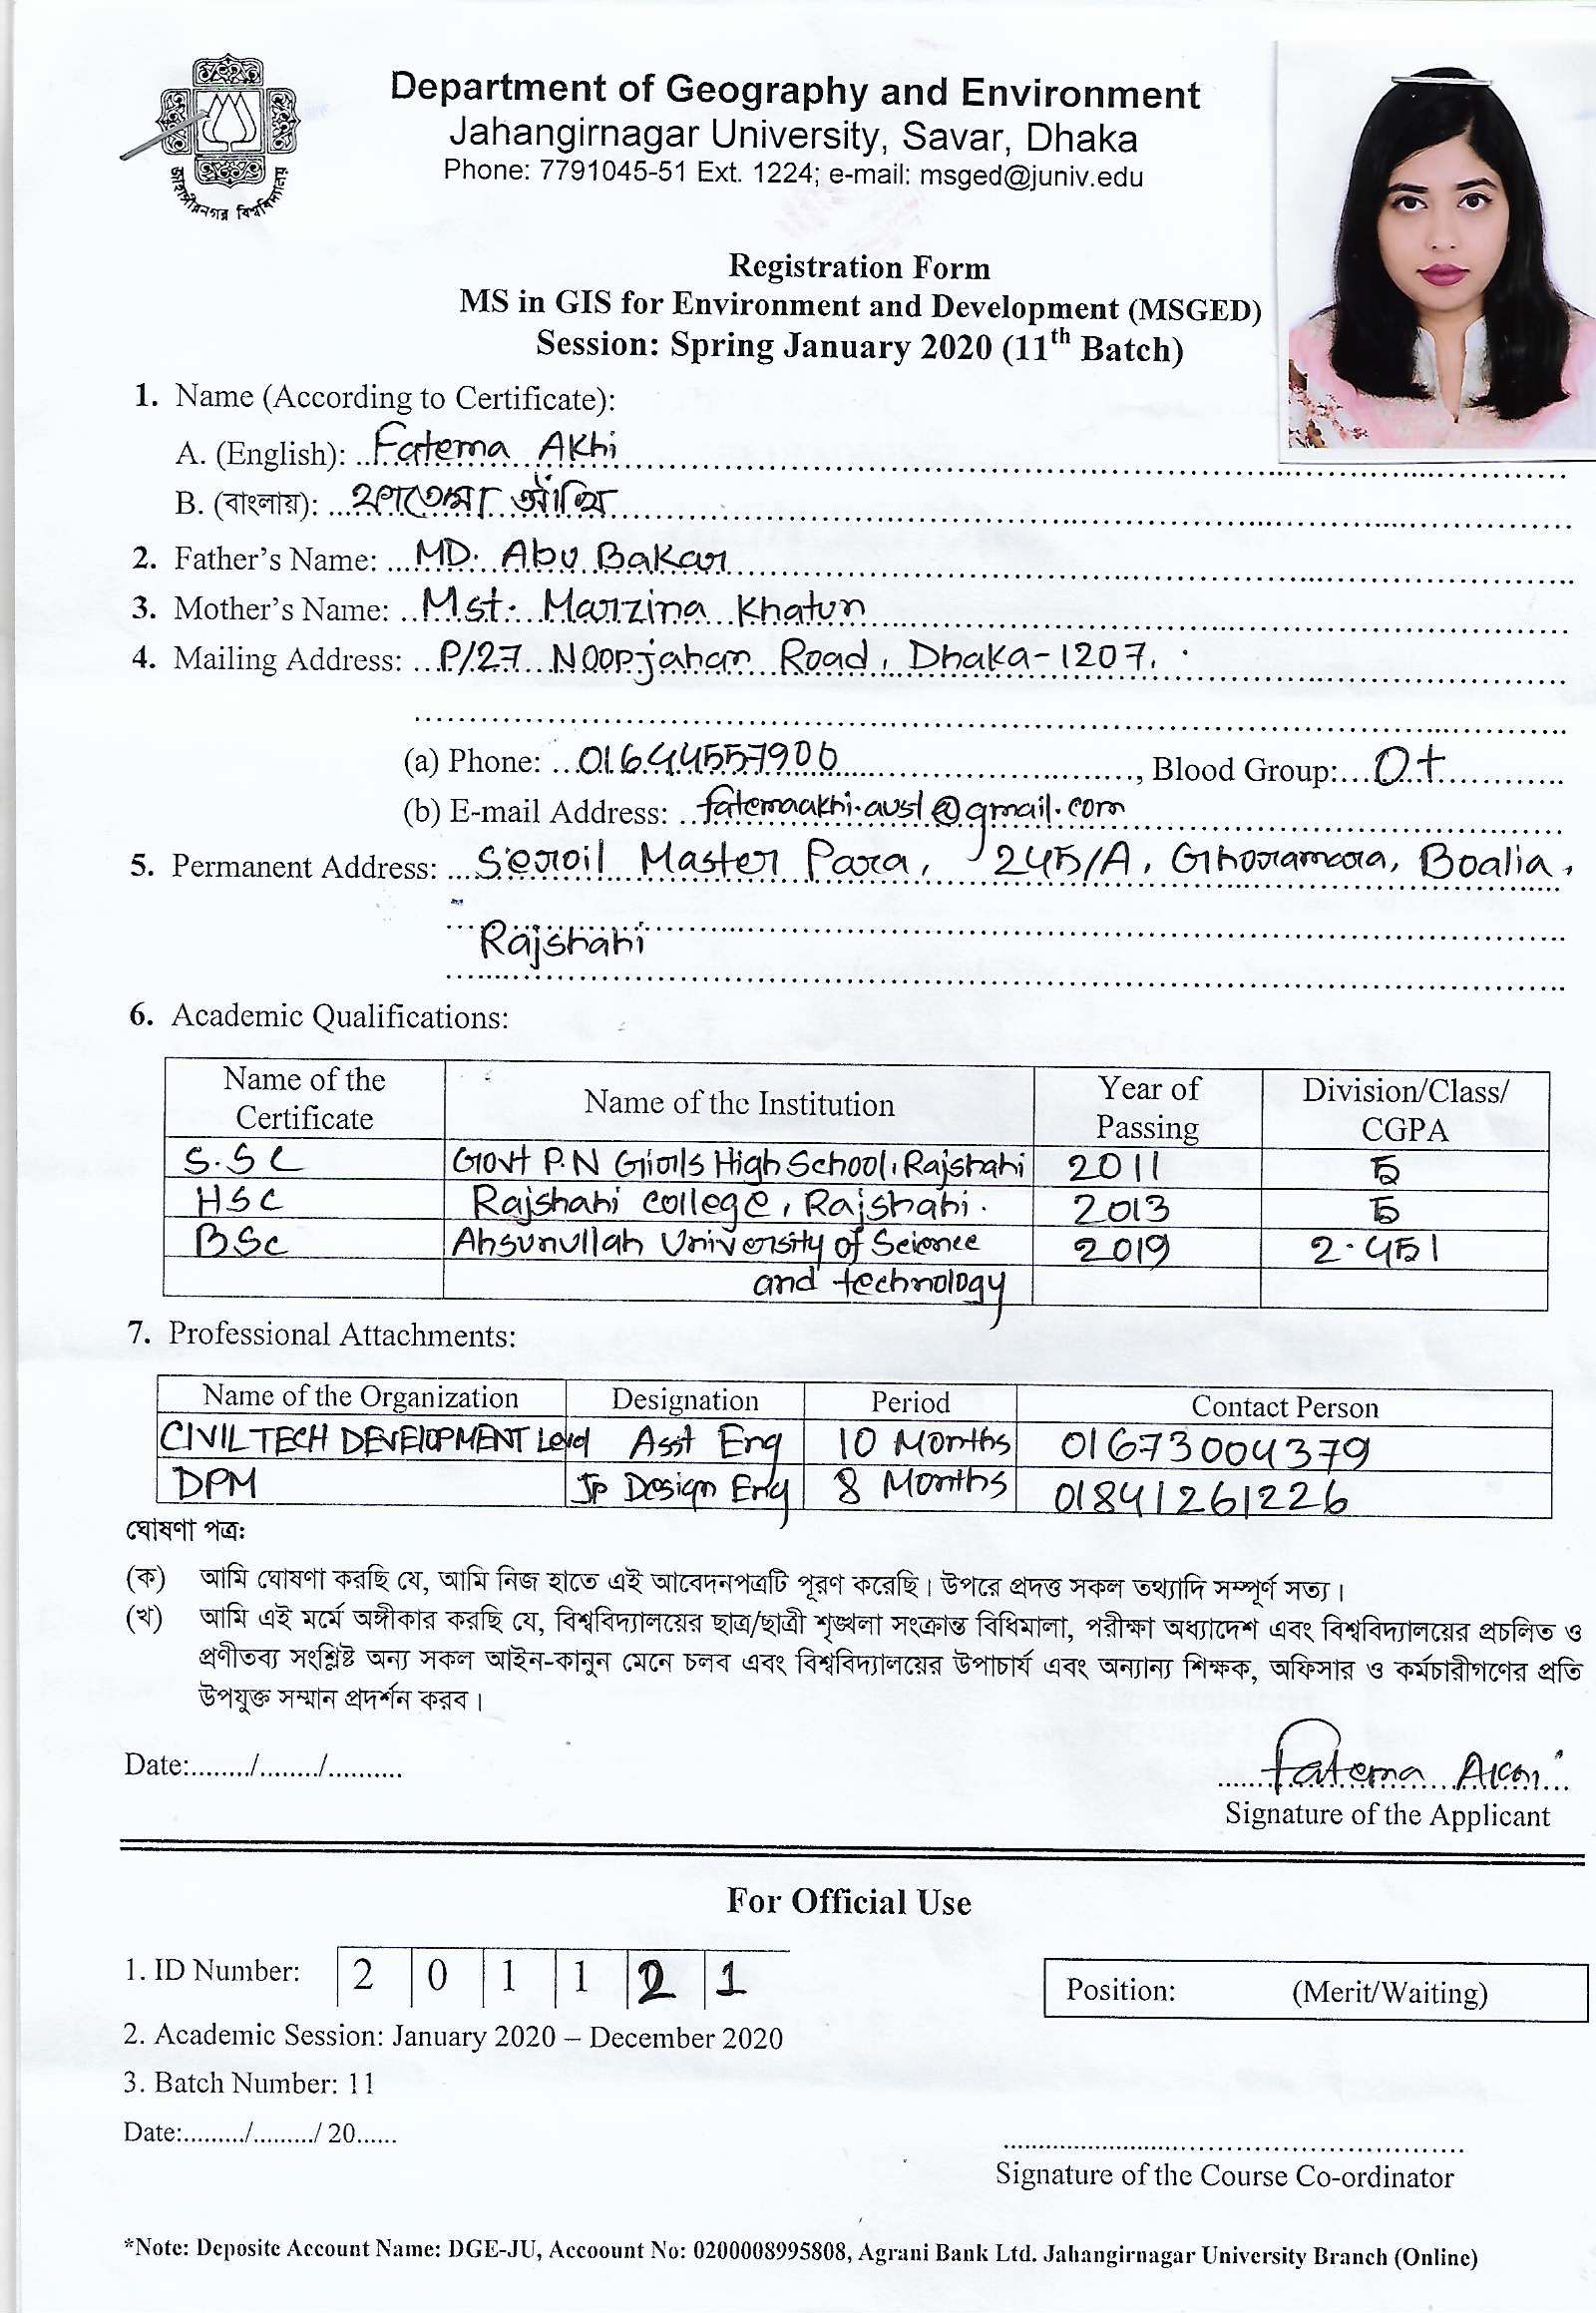 জাহাঙ্গীরনগর বিশ্ববিদ্যালয়
Department of Geography and Environment
Jahangirnagar University, Savar, Dhaka
Phone: 7791045-51 Ext. 1224; e-mail: msged@juniv.edu
Registration Form
MS in GIS for Environment and Development (MSGED)
Session: Spring January 2020 (11th Batch)
1. Name (According to Certificate):
A. (English): Fatema Akhi
B. (বাংলায়): ফাতেমা আঁখি
2. Father's Name: MD. Abu Bakar
3. Mother's Name: Mst. Marzina Khatun
4. Mailing Address: P/27 Noorjahan Road, Dhaka-1207.
(a) Phone: 01644557906, Blood Group: O+
(b) E-mail Address: fatemaakhi.aust@gmail.com
5. Permanent Address: Seroil Master Para, 245/A, Ghoramara, Boalia,
Rajshahi
6. Academic Qualifications:
Name of the Certificate Name of the Institution Year of Passing Division/Class/ CGPA
S.SC Govt P.N Girls High School, Rajshahi 2011 5
HSC Rajshahi College, Rajshahi. 2013 5
BSc Ahsunullah University of Science 2019 2.451
and technology
7. Professional Attachments:
Name of the Organization Designation Period Contact Person
CIVIL TECH DEVELOPMENT Asst Eng 10 Months 01673004379
DPM Jr Design Eng 8 Months 01841261226
ঘোষণা পত্র:
(ক) আমি ঘোষণা করছি যে, আমি নিজ হাতে এই আবেদনপত্রটি পূরণ করেছি। উপরে প্রদত্ত সকল তথ্যাদি সম্পূর্ণ সত্য।
(খ) আমি এই মর্মে অঙ্গীকার করছি যে, বিশ্ববিদ্যালয়ের ছাত্র/ছাত্রী শৃঙ্খলা সংক্রান্ত বিধিমালা, পরীক্ষা অধ্যাদেশ এবং বিশ্ববিদ্যালয়ের প্রচলিত ও
প্রণীতব্য সংশ্লিষ্ট অন্য সকল আইন-কানুন মেনে চলব এবং বিশ্ববিদ্যালয়ের উপাচার্য এবং অন্যান্য শিক্ষক, অফিসার ও কর্মচারীগণের প্রতি
উপযুক্ত সম্মান প্রদর্শন করব।
Date:......../......../..........
Fatema Akhi
Signature of the Applicant
For Official Use
1. ID Number: 2 0 1 1 2 1
Position: (Merit/Waiting)
2. Academic Session: January 2020 – December 2020
3. Batch Number: 11
Date:........./........./ 20......
Signature of the Course Co-ordinator
*Note: Deposite Account Name: DGE-JU, Accoount No: 0200008995808, Agrani Bank Ltd. Jahangirnagar University Branch (Online)